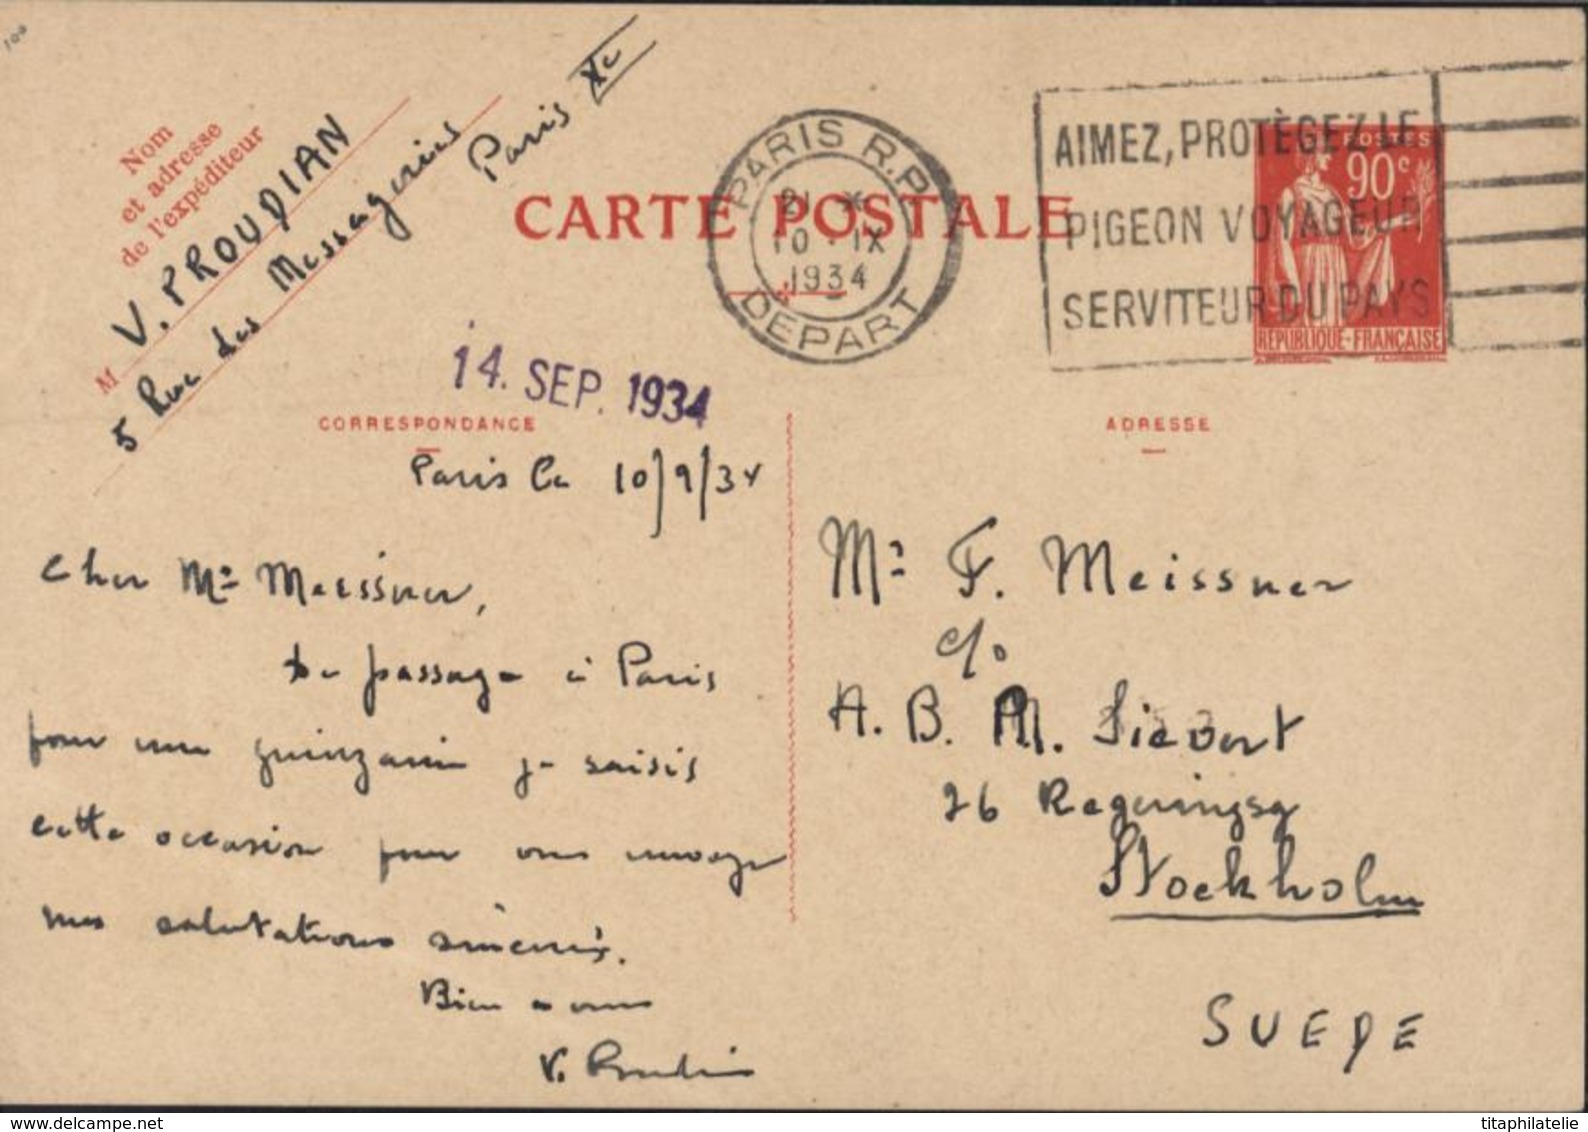 100
Nom
et adresse
de l'expéditeur
M V. PROUDIAN
5 Rue des Messageries
Paris Xe
CARTE POSTALE
PARIS R.P.
21 *
10 - IX
1934
DEPART
AIMEZ, PROTÈGEZ LE
PIGEON VOYAGEUR
SERVITEUR DU PAYS
POSTES
90c
REPUBLIQUE-FRANÇAISE
14. SEP. 1934
CORRESPONDANCE
Paris le 10/9/34
Cher Mr Meissner,
De passage à Paris
pour une quinzaine je saisis
cette occasion pour vous envoyer
mes salutations sincères.
Bien a vous
V. Proudian
ADRESSE
Mr F. Meissner
c/o
A. B. M. Sievert
26 Regeringsg
Stockholm
SUEDE
titaphilatelie on www.delcampe.net